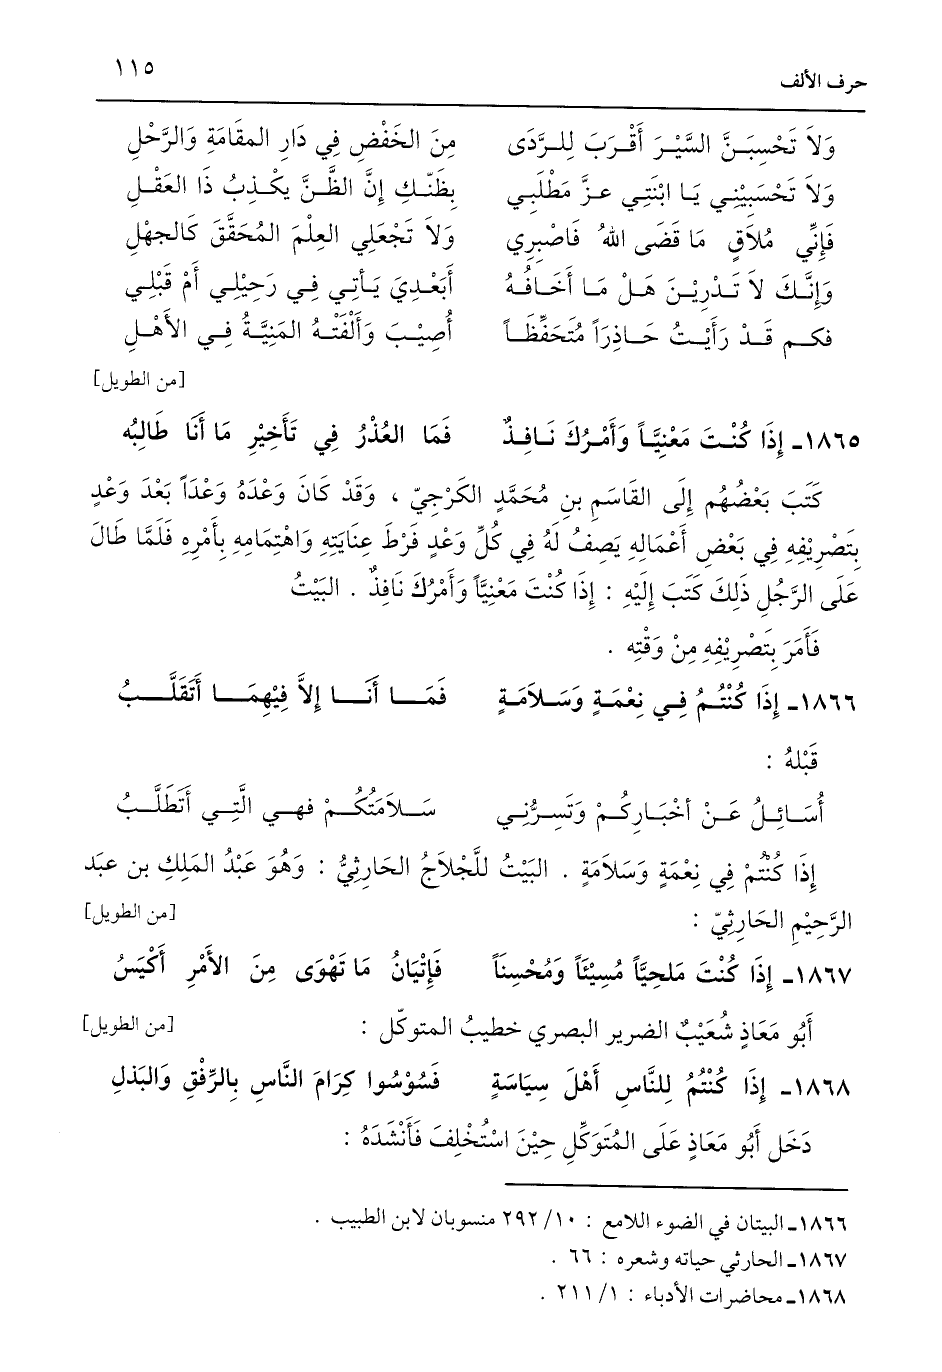 حرف الألف ١١٥
وَلاَ تَحْسِبَنَّ السَّيْرَ أَقْرَبَ لِلرَّدَى مِنَ الخَفْضِ فِي دَارِ المقَامَةِ وَالرَّحْلِ
وَلاَ تَحْسَبِيْنِي يَا ابْنَتِي عزَّ مَطْلَبِي بِظَنّكِ إِنَّ الظَّنَّ يكْذِبُ ذَا العَقْلِ
فَإِنِّي مُلاَقٍ مَا قضَى اللهُ فَاصْبِرِي وَلاَ تَجْعَلِي العِلْمَ المُحَقَّقَ كَالجهْلِ
وَإِنَّكَ لاَ تَدْرِيْنَ هَلْ مَا أَخَافُهُ أَبَعْدِيَ يَأتِي فِي رَحِيْلِي أَمْ قَبْلِي
فكم قَدْ رَأَيْتُ حَاذِرَاً مُتَحَفِّظَاً أُصِيْبَ وَأَلْفَتْهُ المَنِيَّةُ فِي الأَهْلِ
[من الطويل]
١٨٦٥ـ إِذَا كُنْتَ مَعْنِيَّاً وَأَمْرُكَ نَافِذٌ فَمَا العُذْرُ فِي تَأَخِيْرِ مَا أَنَا طَالِبُه
كَتَبَ بَعْضُهُم إِلَى القَاسَمِ بنِ مُحَمَّدٍ الكَرْجِيّ ، وَقَدْ كَانَ وَعْدَهُ وَعْدَاً بَعْدَ وَعْدٍ
بِتَصْرِيْفِهِ فِي بَعْضِ أَعْمَالِهِ يَصِفُ لَهُ فِي كُلِّ وَعْدٍ فَرْطَ عِنَايَتِهِ وَاهْتِمَامِهِ بِأَمْرِهِ فَلَمَّا طَالَ
عَلَى الرَّجُلِ ذَلِكَ كَتَبَ إِلَيْهِ : إِذَا كُنْتَ مَعْنِيَّاً وَأَمْرُكَ نَافِذٌ . البَيْتُ
فَأَمَرَ بِتَصْرِيْفِهِ مِنْ وَقْتِهِ .
١٨٦٦ـ إِذَا كُنْتُمُ فِي نِعْمَةٍ وَسَلاَمَةٍ فَمَا أَنَا إِلاَّ فِيْهِمَا أَتَقَلَّبُ
قَبْلهُ :
أُسَائِلُ عَنْ أخْبَارِكُمْ وَتَسِرُّنِي سَلاَمَتُكُمْ فهي الَّتِي أَتَطَلَّبُ
إِذَا كُنْتُمْ فِي نِعْمَةٍ وَسَلاَمَةٍ . البَيْتُ لِلَّجْلاَجُ الحَارِثِيُّ : وَهُوَ عَبْدُ المَلِكِ بن عبَد
الرَّحِيْمِ الحَارِثِيّ : [من الطويل]
١٨٦٧ـ إِذَا كُنْتَ مَلحِيَّاً مُسِيْئَاً وَمُحْسِنَاً فَإِتْيَانُ مَا تَهْوَى مِنَ الأَمْرِ أَكْيَسُ
أَبُو مَعَاذٍ شُعَيْبٌ الضرير البصري خطيبُ المتوكّل : [من الطويل]
١٨٦٨ـ إِذَا كُنْتُمُ لِلنَّاسِ أَهْلَ سِيَاسَةٍ فَسُوْسُوا كِرَامَ النَّاسِ بِالرِّفْقِ وَالبَذلِ
دَخَل أَبُو مَعَاذٍ عَلَى المُتَوَكِّلِ حِيْنَ اسْتُخْلِفَ فَأَنْشَدَهُ :
١٨٦٦ـ البيتان في الضوء اللامع : ١٠/ ٢٩٢ منسوبان لابن الطبيب .
١٨٦٧ـ الحارثي حياته وشعره : ٦٦ .
١٨٦٨ـ محاضرات الأدباء : ١/ ٢١١ .